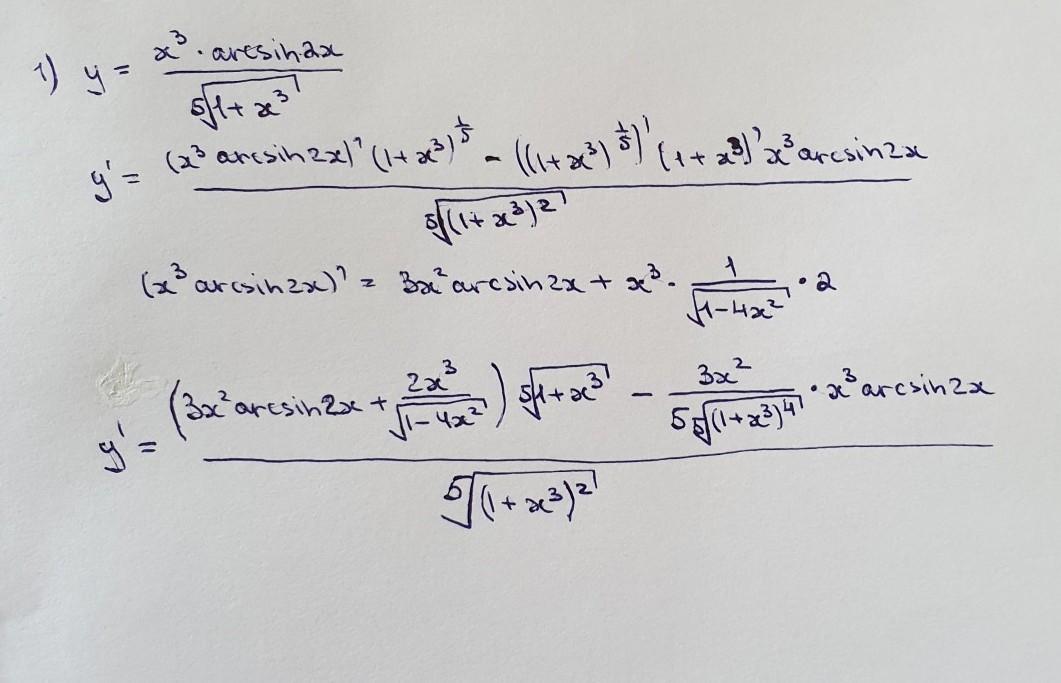 1) y = (x³ · arcsin 2x) / ⁵√(1+x³)
y' = ((x³ arcsin 2x)' (1+x³)^(1/5) - ((1+x³)^(1/5))' (1+x³)' x³ arcsin 2x) / ⁵√((1+x³)²)
(x³ arcsin 2x)' = 3x² arcsin 2x + x³ · 1/√(1-4x²) · 2
y' = ((3x² arcsin 2x + 2x³/√(1-4x²)) ⁵√(1+x³) - 3x²/(5 ⁵√((1+x³)⁴)) · x³ arcsin 2x) / ⁵√((1+x³)²)